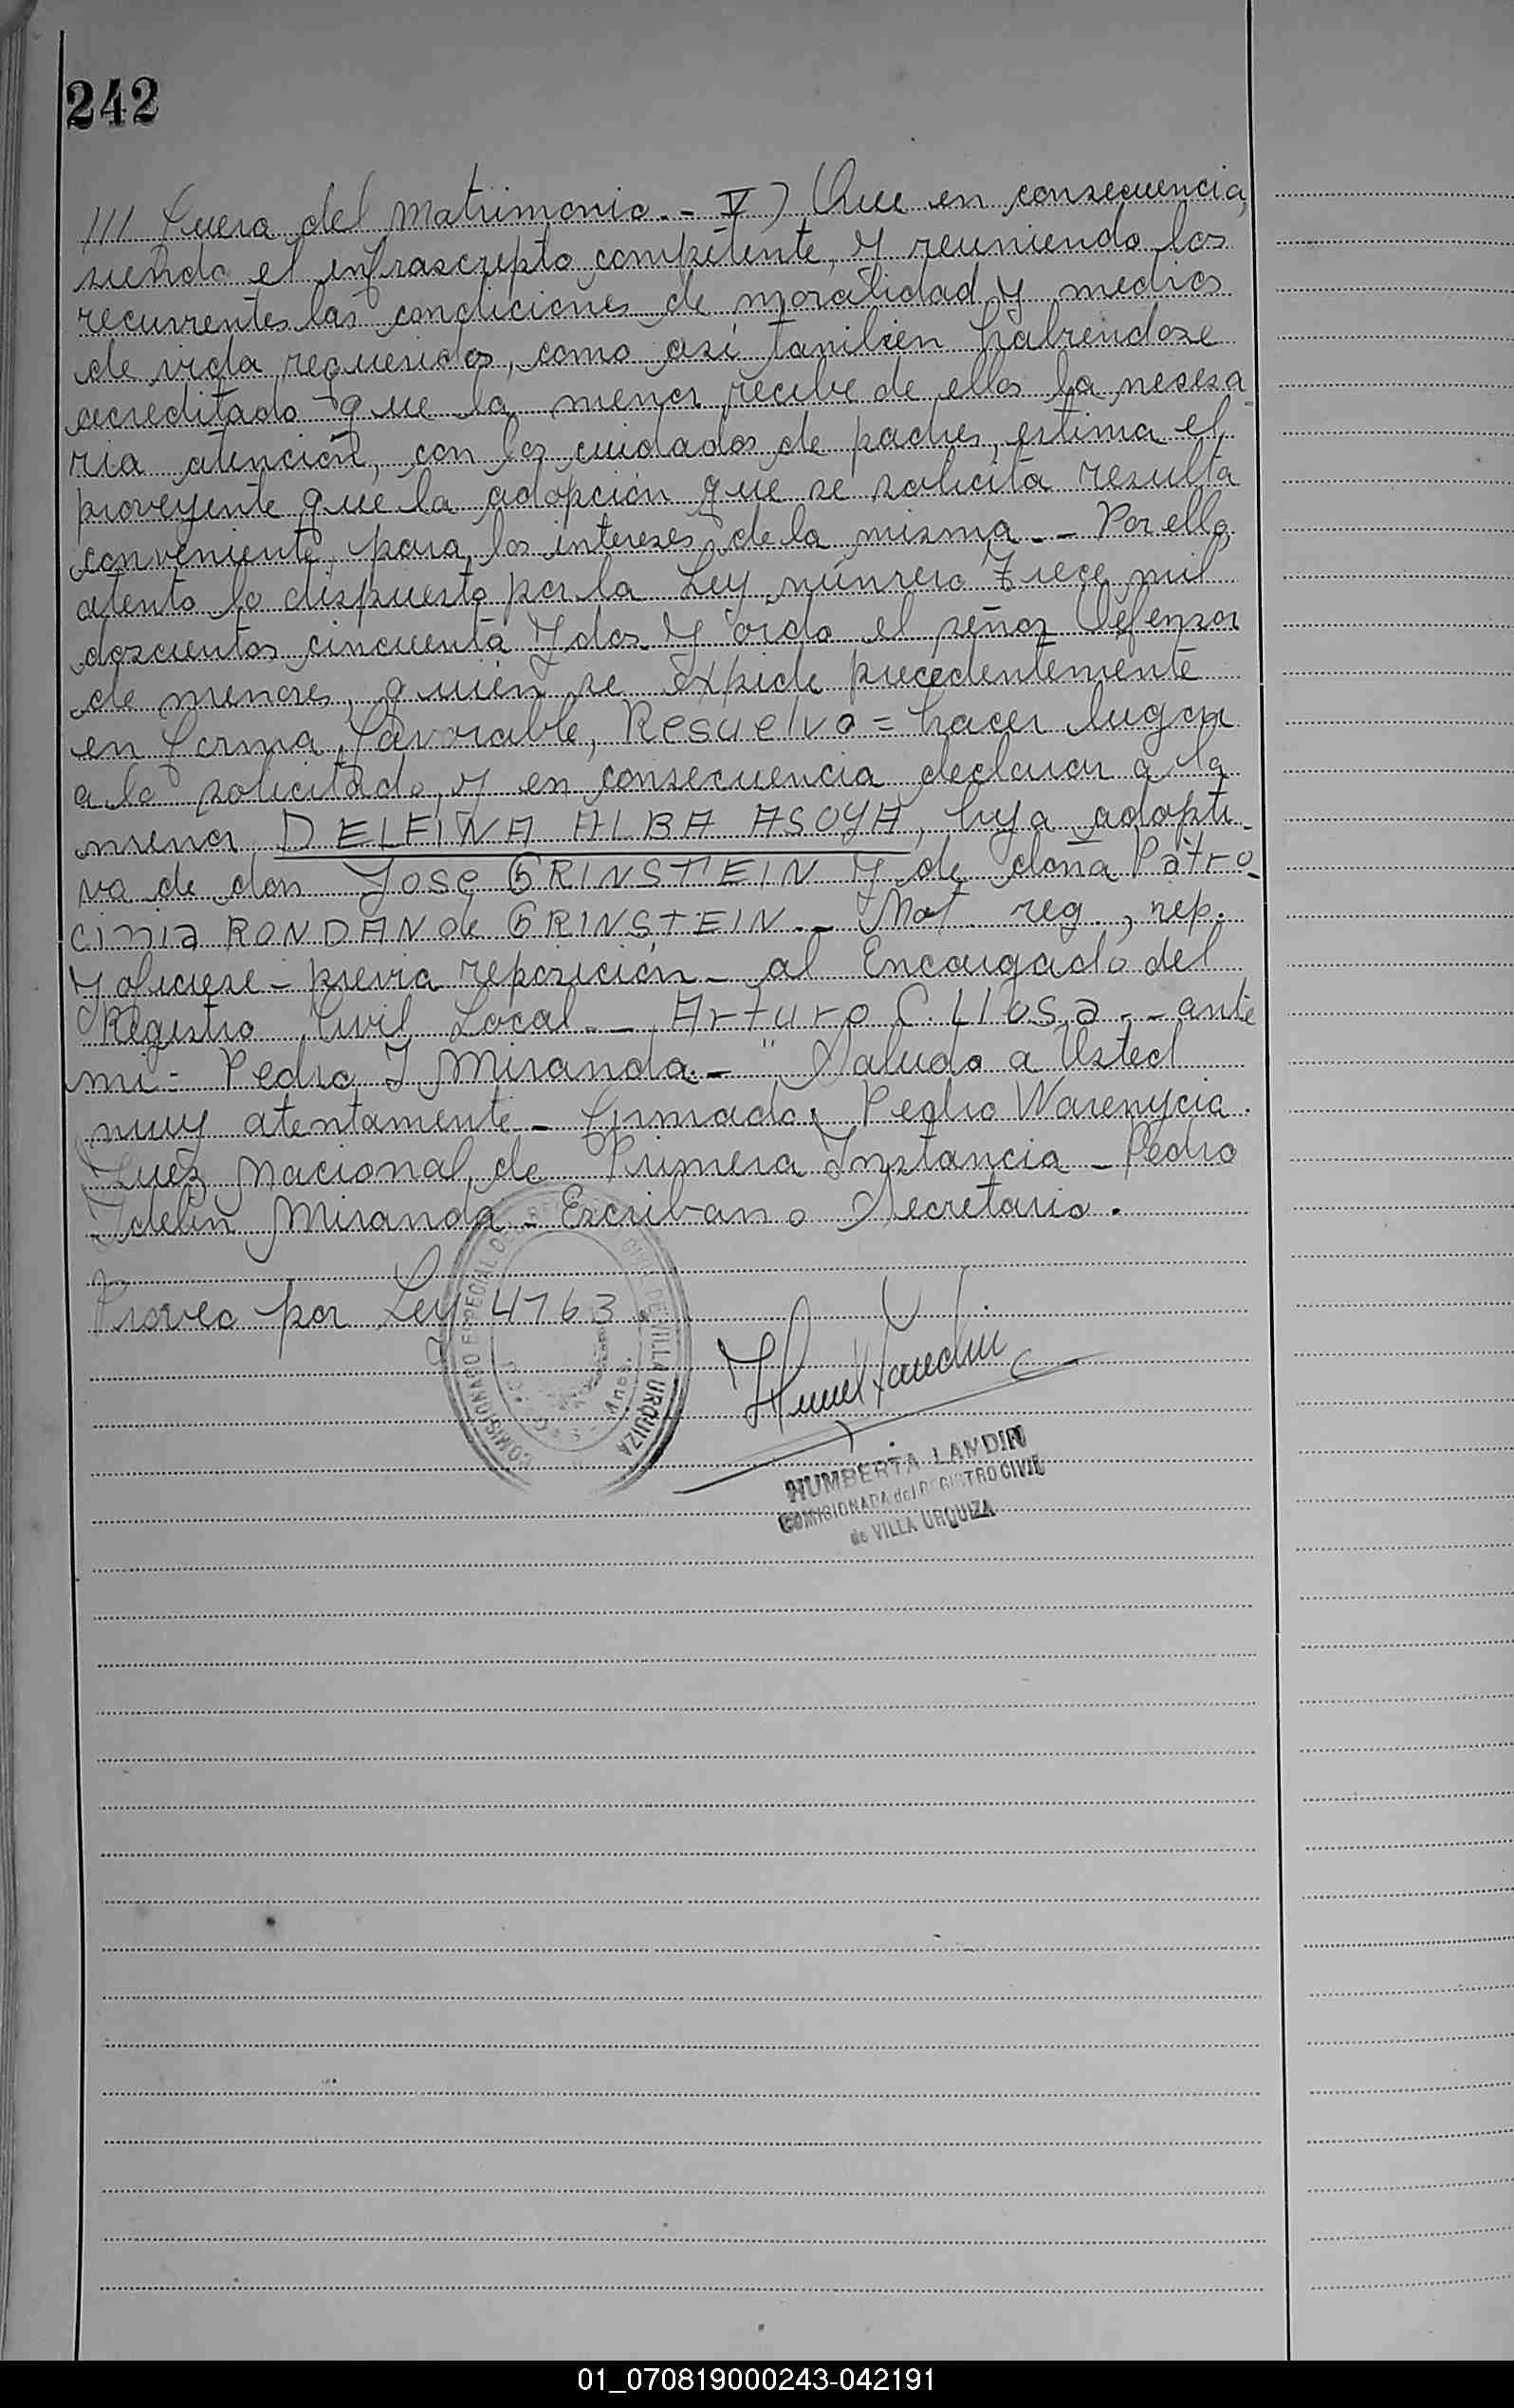 242
/// fuera del matrimonio.- V) Que en consecuencia,
siendo el infrascripto competente, y reuniendo los
recurrentes las condiciones de moralidad y medios
de vida requeridos, como así tambien habiendose
acreditado que la menor recibe de ellos la necesa
ria atención, con los cuidados de padres, estima el
proveyente que la adopción que se solicita resulta
conveniente para los intereses de la misma.- Por ello,
atento lo dispuesto por la Ley número Trece mil
doscientos cincuenta y dos y oido el señor Defensor
de menores, quién se expide precedentemente
en forma favorable, Resuelvo = hacer lugar
a lo solicitado, y en consecuencia declarar a la
menor DELFINA ALBA ASOYA, hija adopti-
va de don José GRINSTEIN y de doña Patro-
cinia RONDAN de GRINSTEIN.- Not. reg., rep.
y ofíciese - previa reposición - al Encargado del
Registro Civil Local.- Arturo C. Llosa.- ante
mi = Pedro I Miranda.-" Saludo a Usted
muy atentamente - firmado, Pedro Warenycia.
Juez Nacional de Primera Instancia - Pedro
Idelin Miranda - Escribano Secretario.
Proveo por Ley 4763
COMISIONADO ESPECIAL DEL REGISTRO CIVIL DE VILLA URQUIZA
HUMBERTA LANDIN
COMISIONADA del REGISTRO CIVIL
de VILLA URQUIZA
01_070819000243-042191